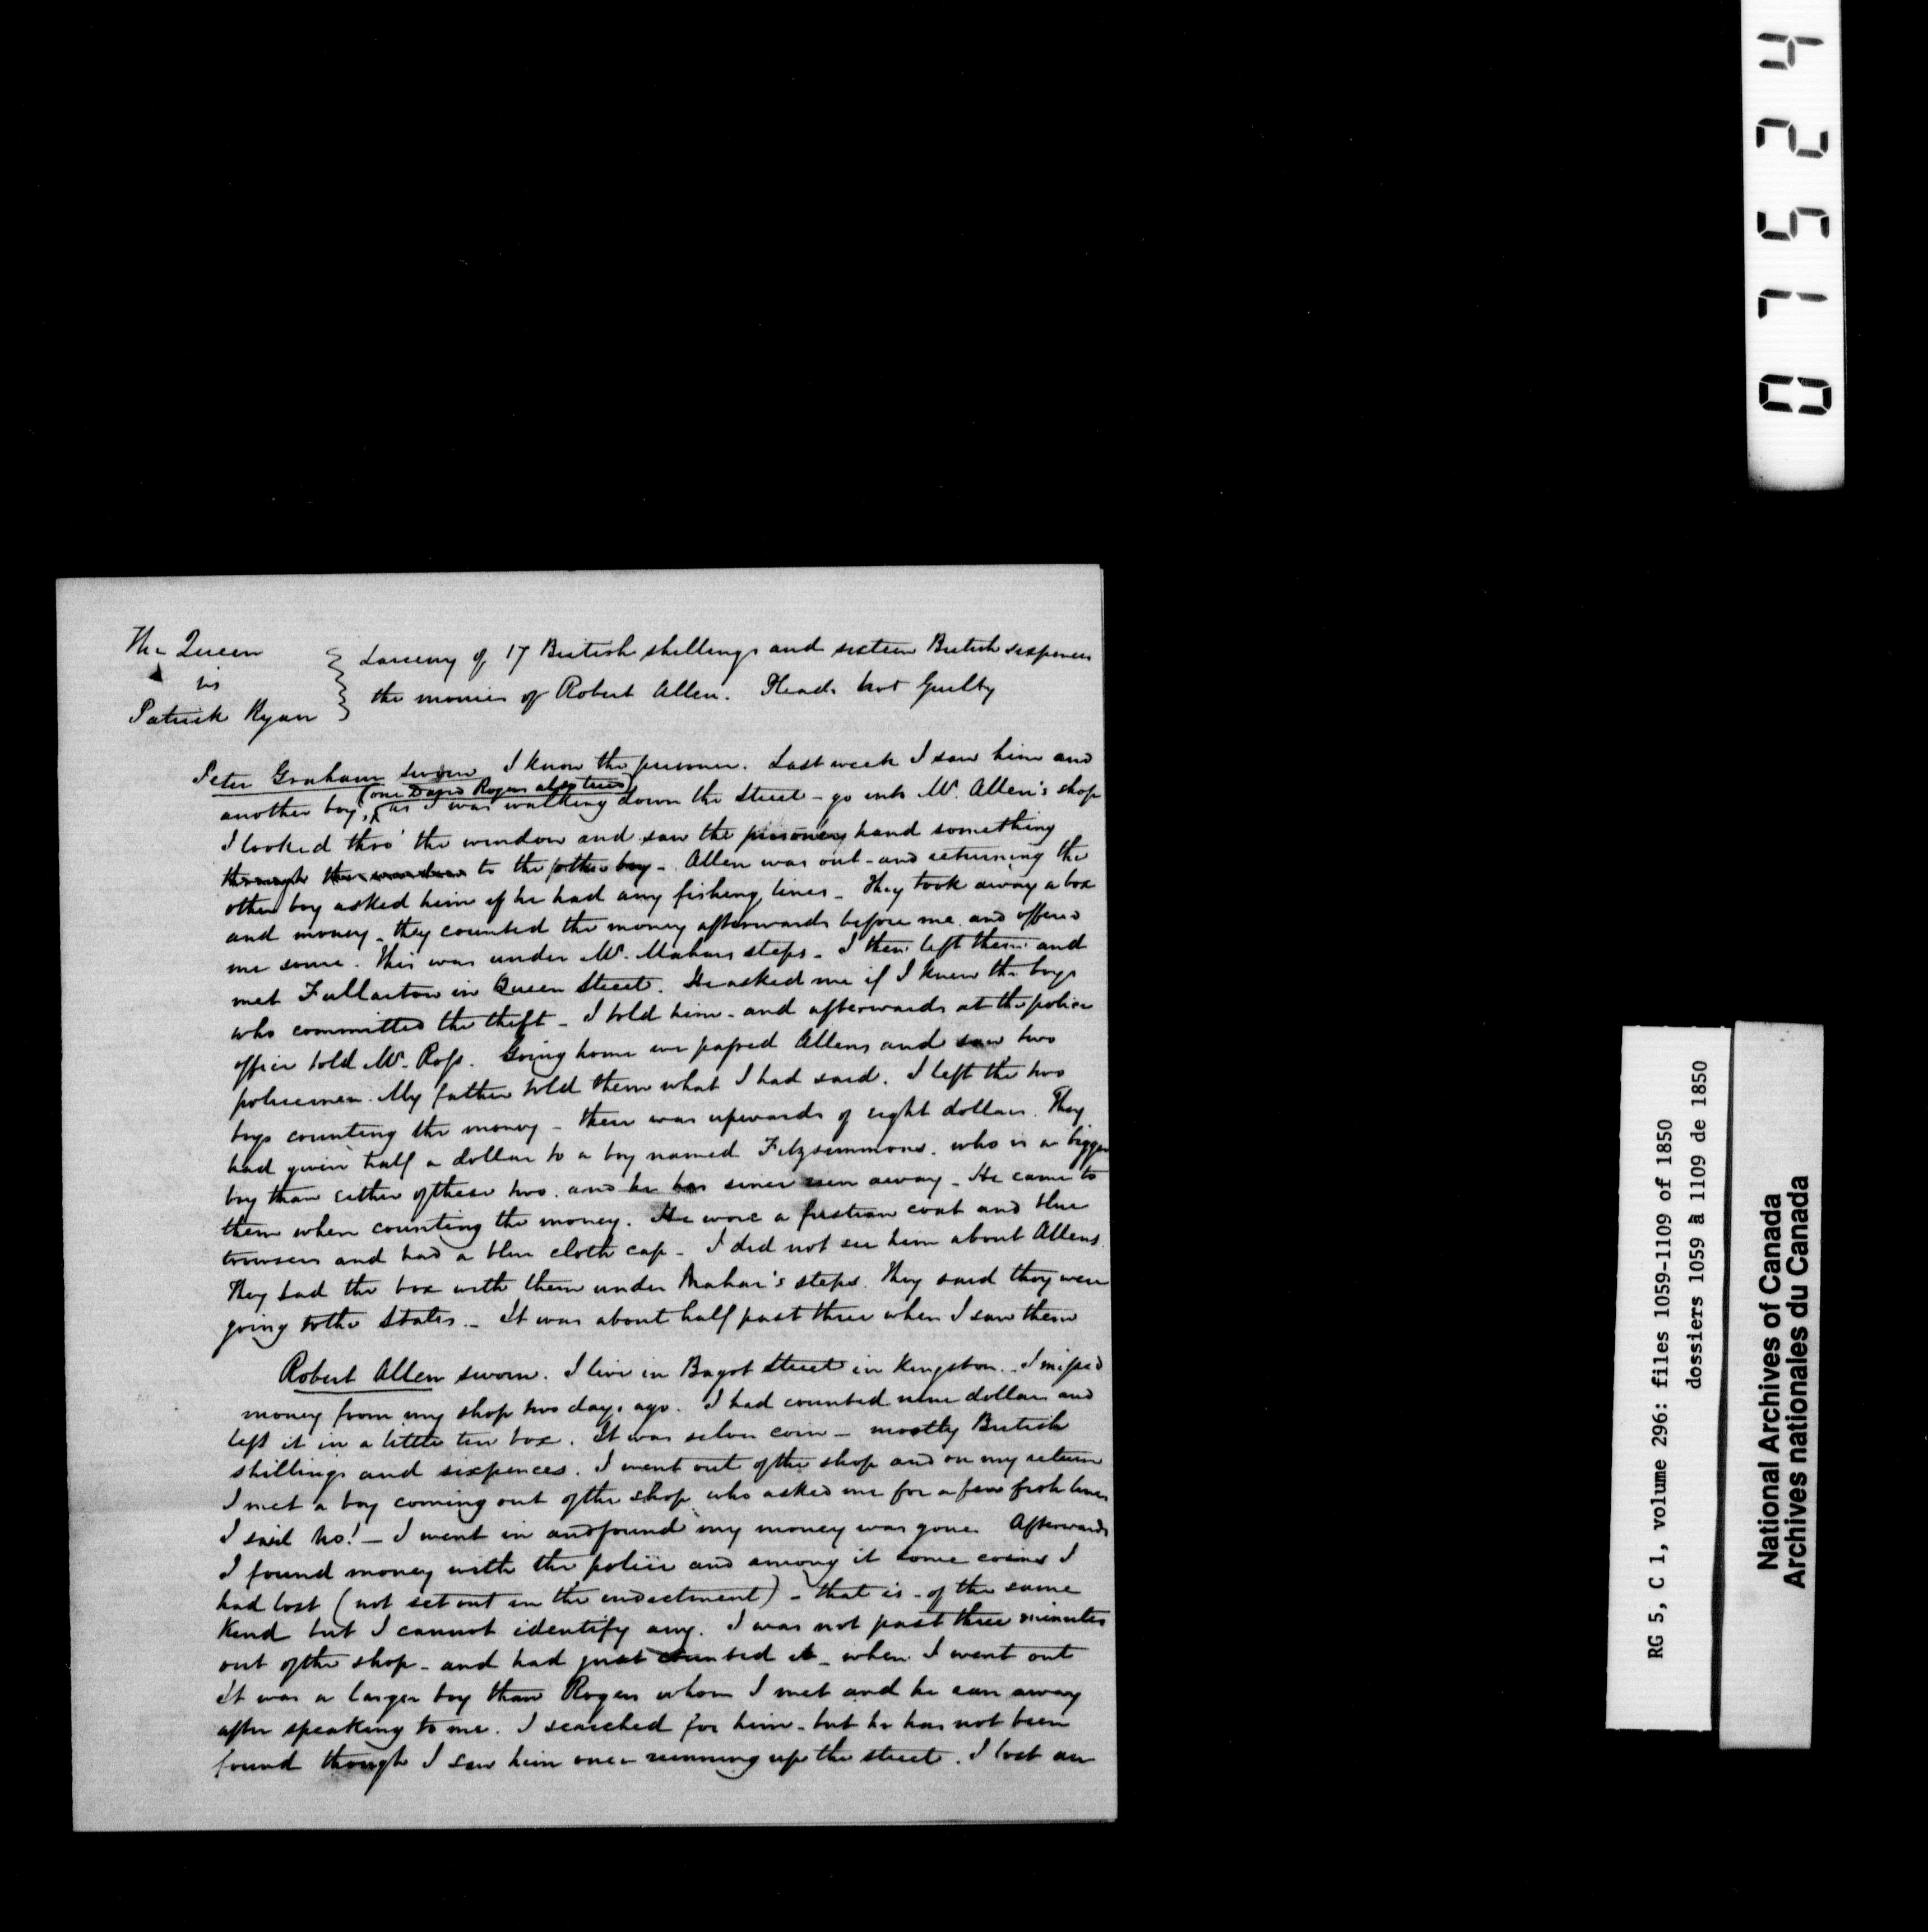 The Queen
vs
Patrick Ryan
Larceny of 17 British shillings and sixteen British sixpences
the monies of Robert Allen. Pleads Not Guilty
Peter Graham sworn I know the prisoner. Last week I saw him and
(one David Rogers also tried)
another boy, as I was walking down the Street - go into Mr. Allen's shop
I looked thro' the window and saw the prisoner hand something
through the window to the other boy - Allen was out - and returning the
other boy asked him if he had any fishing lines - They took away a box
and money - they counted the money afterwards before me and offered
me some. This was under Mr. Mahars steps - I then left them and
met Fullarton in Queen Street. He asked me if I knew the boys
who committed the theft - I told him - and afterwards at the police
office told Mr. Ross. Going home we passed Allens and saw two
policemen. My father told them what I had said. I left the two
boys counting the money - there was upwards of eight dollars. They
had given half a dollar to a boy named Fitzsimmons. who is a bigger
boy than either of these two. and he has since run away - He came to
them when counting the money. He wore a fustian coat and blue
trowsers and had a blue cloth cap - I did not see him about Allens.
They had the box with them under Mahar's steps. They said they were
going to the States. - It was about half past three when I saw them
Robert Allen sworn. I live in Bagot Street in Kingston. - I missed
money from my shop two days ago. I had counted nine dollars and
left it in a little tin box. It was silver coin - mostly British
shillings and sixpences. I went out of the shop and on my return
I met a boy coming out of the shop who asked me for a few fish lines
I said No! - I went in and found my money was gone. Afterwards
I found money with the police and among it some coins I
had lost (not set out in the indictment) - that is - of the same
kind but I cannot identify any. I was not past three minutes
out of the shop - and had just counted it - when I went out
It was a larger boy than Rogers whom I met and he ran away
after speaking to me. I searched for him - but he has not been
found though I saw him once running up the street. I lost an
07524
RG 5, C 1, volume 296: files 1059-1109 of 1850
dossiers 1059 à 1109 de 1850
National Archives of Canada
Archives nationales du Canada